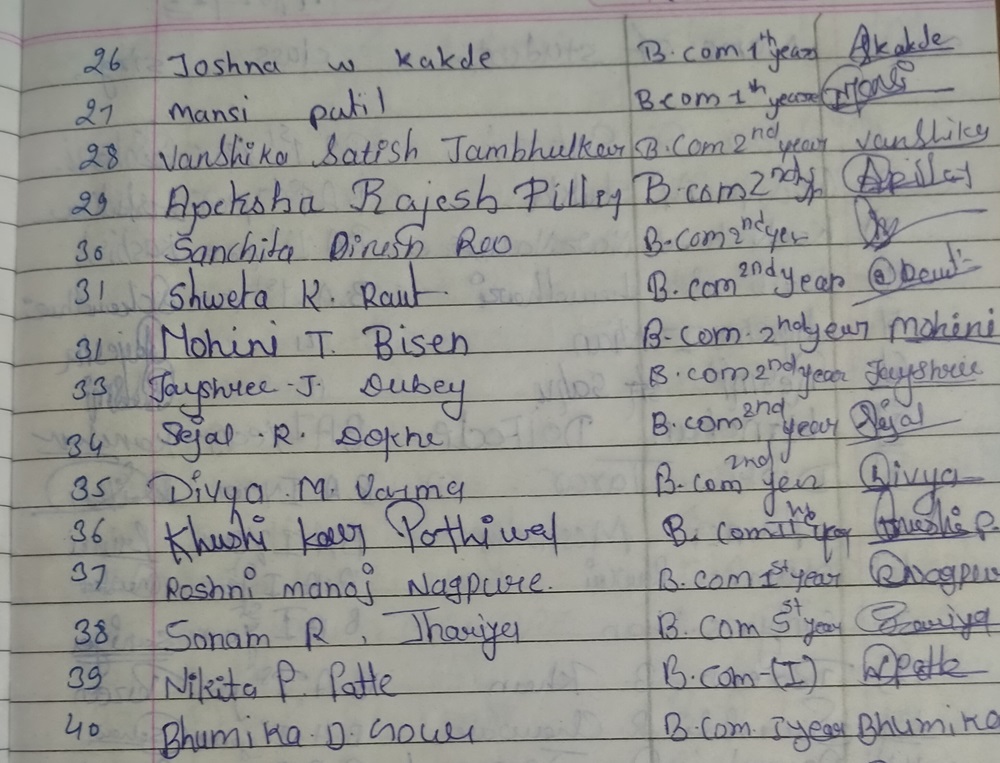 26 Joshna w kakde B.com 1th year Akakde
27 Mansi patil B.com 1th year Mansi
28 Vanshika Satish Jambhulkar B.Com 2nd year Vanshika
29 Apeksha Rajesh Pilley B.com 2nd y APilley
30 Sanchita Dinesh Rao B.com 2nd yer
31 Shweta K. Raut. B.com 2nd year
31 Mohini T. Bisen B.com. 2nd year Mohini
33 Jayshree J. Dubey B.com 2nd year Jayshree
34 Sejal R. Dokhe B.com 2nd year Sejal
35 Divya M. Varma B.com 2nd year Divya
36 Khushi kaur B. com
37 Roshni manoj Nagpure. B.com 1st year RNagpur
38 Sonam R. Jhariya B.Com st year
39 Nikita P. Patle B.com-(I) NPatle
40 Bhumika D. B.com. I year Bhumika